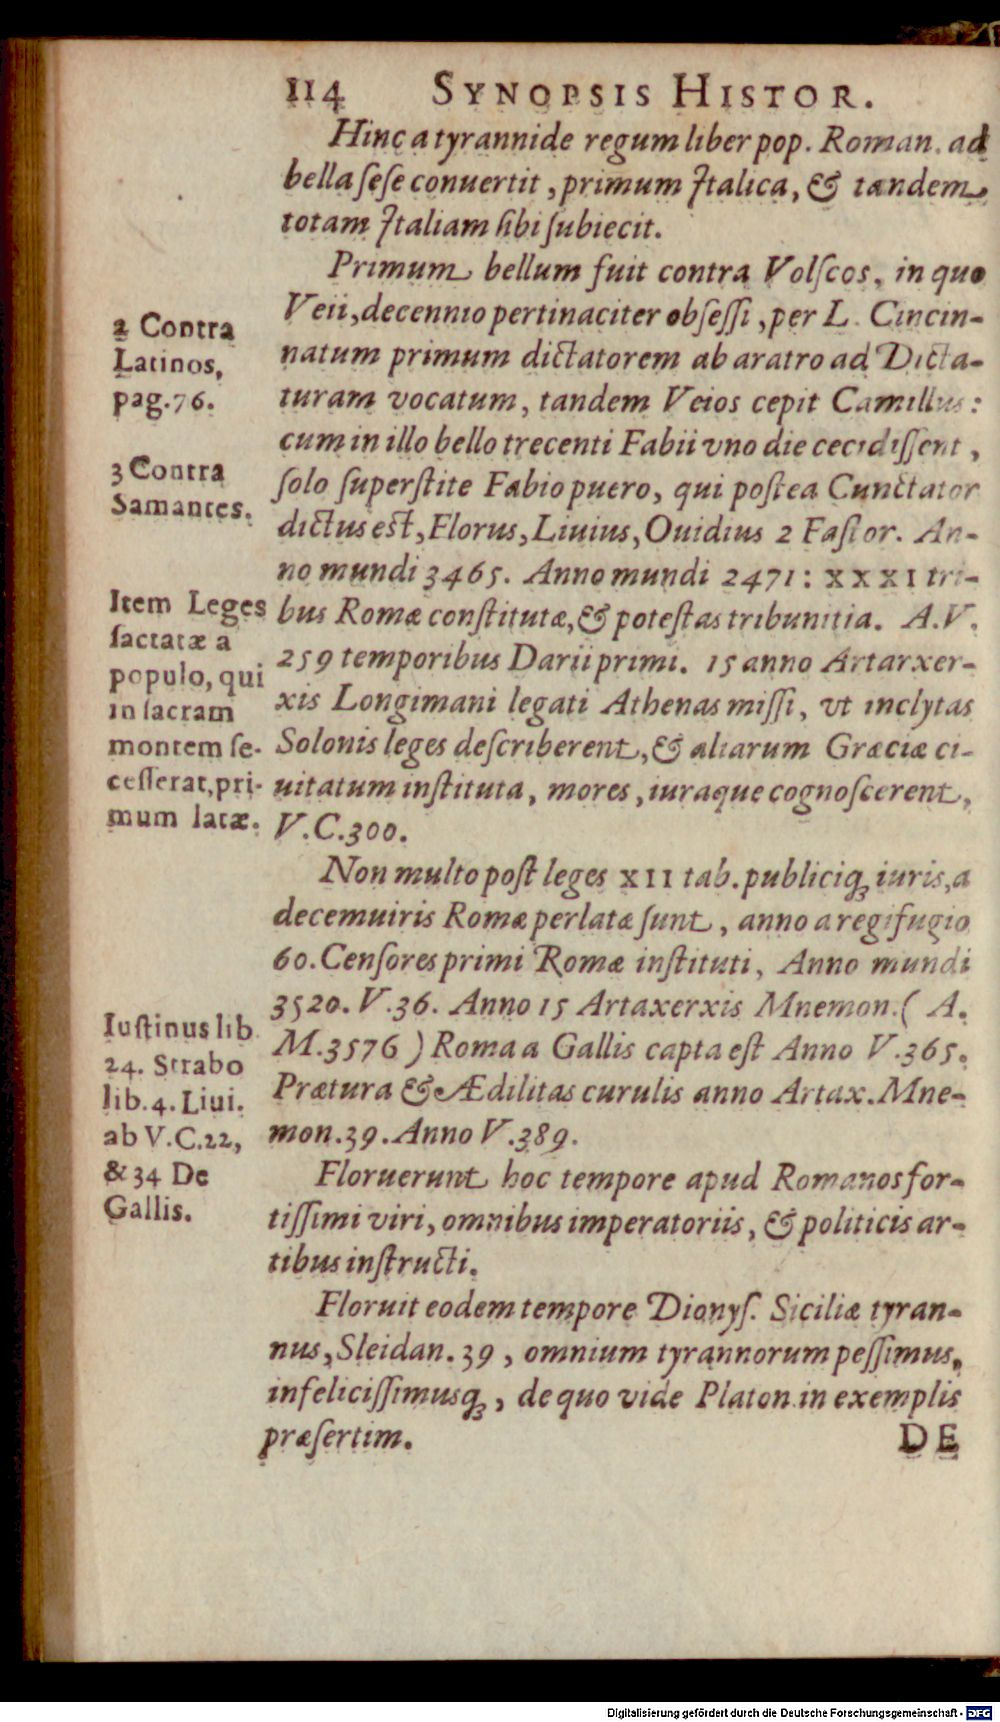 114 SYNOPSIS HISTOR.
Hinc a tyrannide regum liber pop. Roman. ad
bella ſeſe conuertit, primum Italica, & tandem
totam Italiam ſibi ſubiecit.
Primum bellum fuit contra Volſcos, in quo
Veii, decennio pertinaciter obſeſſi, per L. Cincin-
natum primum dictatorem ab aratro ad Dicta-
turam vocatum, tandem Veios cepit Camillus:
cum in illo bello trecenti Fabii vno die cecidiſſent,
ſolo ſuperſtite Fabio puero, qui poſtea Cunctator
dictus eſt, Florus, Liuius, Ouidius 2 Faſtor. An-
no mundi 3465. Anno mundi 2471: XXXI tri-
bus Romæ conſtitutæ, & poteſtas tribunitia. A.V.
259 temporibus Darii primi. 15 anno Artarxer-
xis Longimani legati Athenas miſſi, vt inclytas
Solonis leges deſcriberent, & aliarum Græciæ ci-
uitatum inſtituta, mores, iuraque cognoſcerent,
V.C.300.
Non multo poſt leges XII tab. publiciq; iuris, a
decemuiris Romæ perlatæ ſunt, anno a regifugio
60. Cenſores primi Romæ inſtituti, Anno mundi
3520. V.36. Anno 15 Artaxerxis Mnemon. ( A.
M.3576 ) Roma a Gallis capta eſt Anno V.365.
Prætura & Ædilitas curulis anno Artax. Mne-
mon.39. Anno V.389.
Floruerunt hoc tempore apud Romanos for-
tiſſimi viri, omnibus imperatoriis, & politicis ar-
tibus inſtructi.
Floruit eodem tempore Dionyſ. Siciliæ tyran-
nus, Sleidan. 39, omnium tyrannorum peſſimus,
infeliciſſimusq;, de quo vide Platon. in exemplis
præſertim.
DE
2 Contra
Latinos,
pag.76.
3 Contra
Samantes.
Item Leges
ſactatæ a
populo, qui
in ſacram
montem ſe-
ceſſerat, pri-
mum latæ.
Iuſtinus lib
24. Strabo
lib.4. Liui.
ab V.C.22,
& 34 De
Gallis.
Digitalisierung gefördert durch die Deutsche Forschungsgemeinschaft - DFG